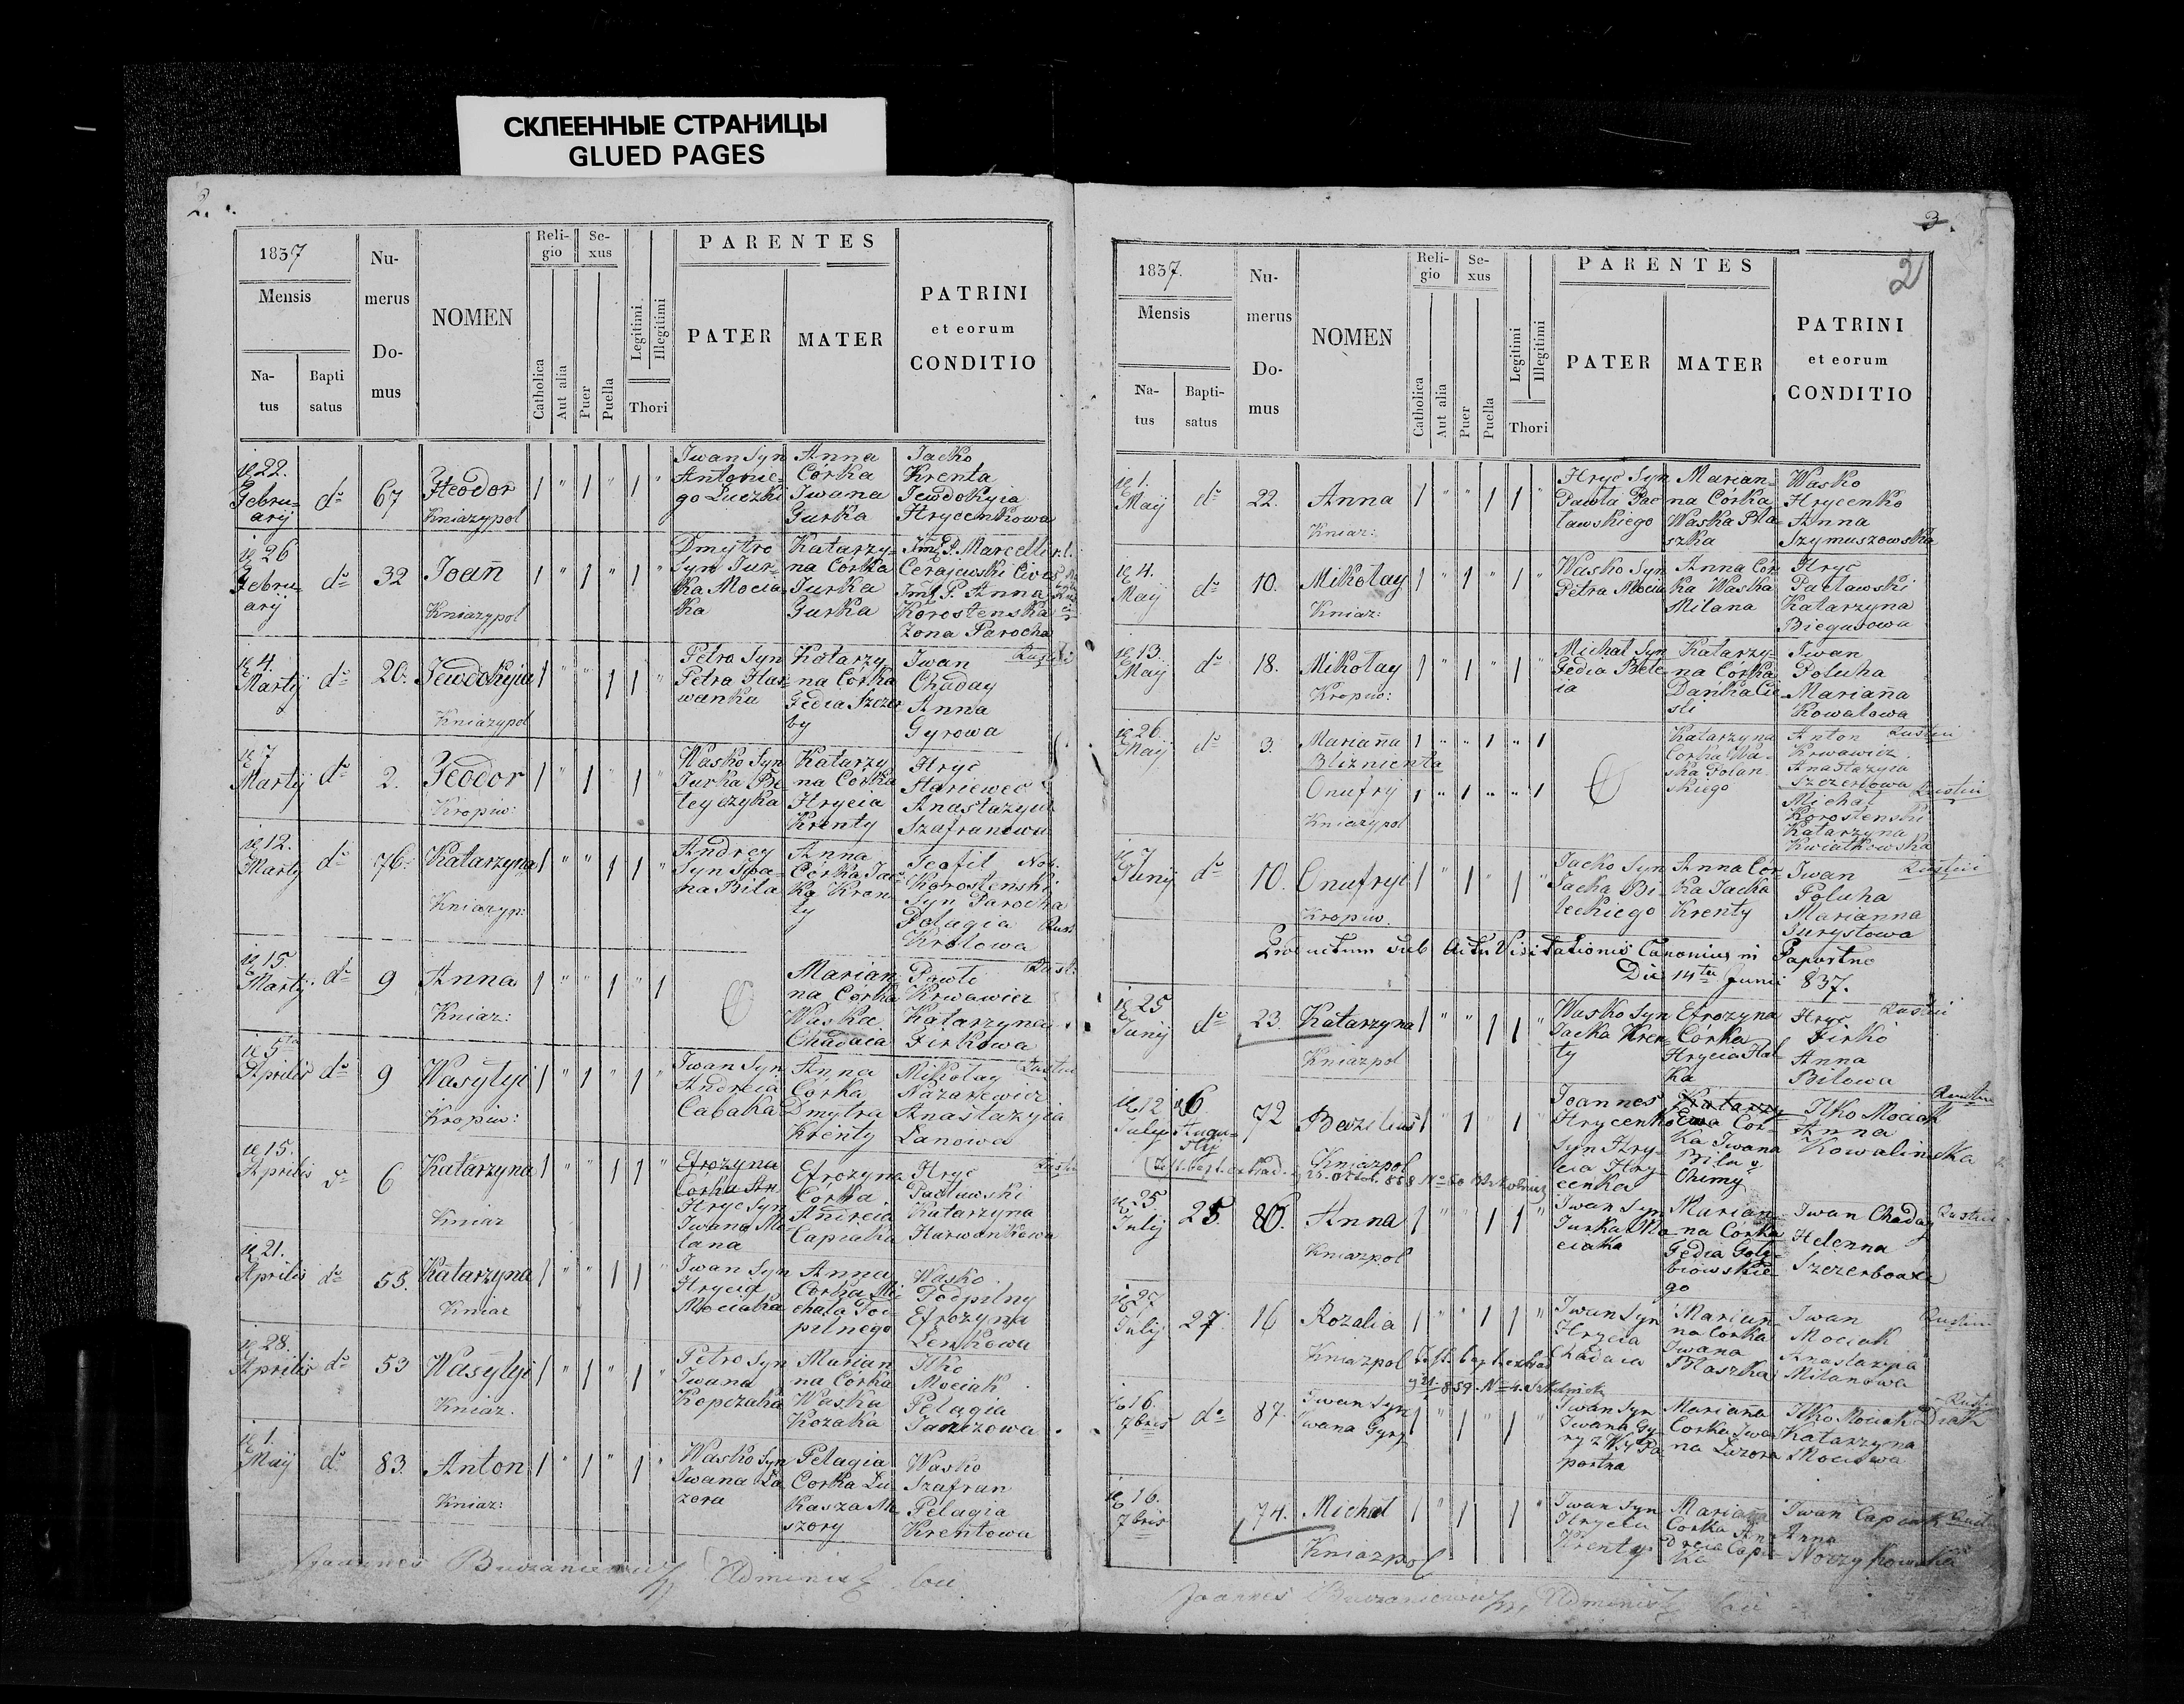 СКЛЕЕННЫЕ СТРАНИЦЫ
GLUED PAGES
2.
1837
Mensis
Na-
tus
Bapti
satus
Nu-
merus
Do-
mus
NOMEN
Reli-
gio
Catholica
Aut alia
Se-
xus
Puer
Puella
Legitimi
Illegitimi
Thori
PARENTES
PATER
MATER
PATRINI
et eorum
CONDITIO
22.
Febru-
arij
do
67
Theodor
Kniazypol
Iwan Syn
Antonie-
go Luczki
Anna
Córka
Iwana
Gurka
Jacko
Krenta
Jewdokyia
Hrycenkowa
26
Febru-
arij
do
32
Joañ
Kniazypol
Dmytro
Syn Jur-
ka Mocia-
ka
Katarzy-
na Córka
Jurka
Gurka
P. Marcelli
Anna
Korostenska
Zona Parocha
4.
Martij
do
20.
Jewdokyia
Kniazypol
Petro Syn
Petra Har-
wanka
Katarzy-
na Córka
Fedia Szczer
by
Iwan
Chaday
Anna
Gyrowa
7
Martij
do
2.
Teodor
Kropiw:
Wasko Syn
Jurka Bi-
leyczyka
Katarzy
na Córka
Hrycia
Krenty
Hryc
Anastazyia
Szafranowa
12.
Marty
do
76.
Katarzyna
Kniazyp:
Andrey
Syn
Bila
Anna
Córka Jac
ka Kren
ty
Teofil
Korosteński
Syn Parocha
Pelagia
Krolowa
15.
Martij
do
9
Anna
Kniaz:
Marian
na Córka
Waska
Chadaia
Pawlo
Krwawicz
Katarzyna
Firkowa
5ta
Aprilis
do
9
Wasylyi
Kropiw:
Iwan Syn
Andreia
Cabaka
Anna
Córka
Dmytra
Krenty
Mikolay
Nazarewicz
Anastazyia
Lanowa
15.
Aprilis
6
Katarzyna
Kniaz
Efrozyna
Corka An
Hryc Syn
Iwana Mi
lana
Efrozyna
Córka
Andreia
Capiaka
Hryc
Paclawski
Katarzyna
Harwankowa
21.
Aprilis
do
55.
Katarzyna
Kniaz
Iwan Syn
Hrycia
Mociaka
Anna
Corka Mi
chala Pod-
pilnego
Wasko
Podpilny
Efrozyna
Lenkowa
28.
Aprilis
do
53
Wasylyi
Kniaz.
Petro Syn
Iwana
Kopczaka
Marian
na Córka
Waska
Kozaka
Ilko
Mociak
Pelagia
1.
Maij
do
83.
Anton
Kniaz:
Wasko Syn
Iwana La
zora
Pelagia
Corka Lu-
kasza Ma
szory
Wasko
Szafran
Pelagia
Krentowa
Joannes
3.
2
1837.
Mensis
Na-
tus
Bapti-
satus
Nu-
merus
Do-
mus
NOMEN
Reli-
gio
Catholica
Aut alia
Se-
xus
Puer
Puella
Legitimi
Illegitimi
Thori
PARENTES
PATER
MATER
PATRINI
et eorum
CONDITIO
1.
Maij
do
22.
Anna
Kniaz:
Hryc Syn
Pawla Pac
lawskiego
Marian-
na Córka
Waska Pla-
szka
Wasko
Hrycenko
Anna
Szymuszowska
4.
Maij
do
10.
Mikolay
Kniaz:
Wasko Syn
Petra Mocia
Anna Cor
ka Waska
Milana
Hryc
Paclawski
Katarzyna
Biegusowa
13.
Maij
do
18.
Mikolay
Kropiw:
Michal Syn
Fedia Bele-
ia
Katarzy-
na Córka
Dańka Cie
sli
Iwan
Poluha
Mariaña
Kowalowa
26.
Maij
do
3.
Mariaña
Bliznienta
Onufry
Kniazypol
Katarzyna
Corka Wa-
ska Polan
skiego
Anton
Krwawicz
Anastazyia
Szczerbowa
Michal
Korostenski
Katarzyna
Kwiatkowska
7
Junij
do
10.
Onufryi
Kropiw.
Jacko Syn
Jacka Bi-
leckiego
Anna Cór-
ka Jacka
Krenty
Iwan
Poluha
Marianna
Jurystowa
sub Actu Visitationis Canonicus in Paportno
Die 14ta Junii 837.
25
Junij
do
23.
Katarzyna
Kniazpol
Wasko Syn
Jacka Kren-
ty
Efrozyna
Córka
Hrycia Hal-
ka
Hryc
Firko
Anna
Bilowa
12
Julij
6
Augu-
stij
72
Bazilius
Kniazpol
Joannes
Hrycenko
Syn Hry-
cia Hry-
cenka
Katarzy
Ewa Cor-
ka Iwana
Bila
Chimy
Ilko Mociak
Anna
Kowalinska
25
Julij
25.
86.
Anna
Kniazpol
Iwan Syn
Jurka Mo
ciaka
Marian-
na Córka
Fedia Golę-
biowskie-
go
Iwan Chaday
Helenna
Szczerbowa
27
Julij
27.
16
Rozalia
Kniazpol
Iwan Syn
Hrycia
Chadaia
Mariañ-
na Corka
Iwana
Plaszka
Iwan
Mociak
Anastazyia
Milanowa
16.
7bris
do
87.
Iwan Syn
Iwana Gyry
Iwan Syn
Iwana Gy-
ry z Wsi Pa
portna
Mariaña
Corka Iwa
na Lazora
Ilko Mociak Diak
Katarzyna
Mociowa
16.
7bris
74.
Michal
Kniazpol
Iwan Syn
Hrycia
Krenty
Mariaña
Corka An
dreia Capia-
ka
Iwan Capiak
Anna
Joannes